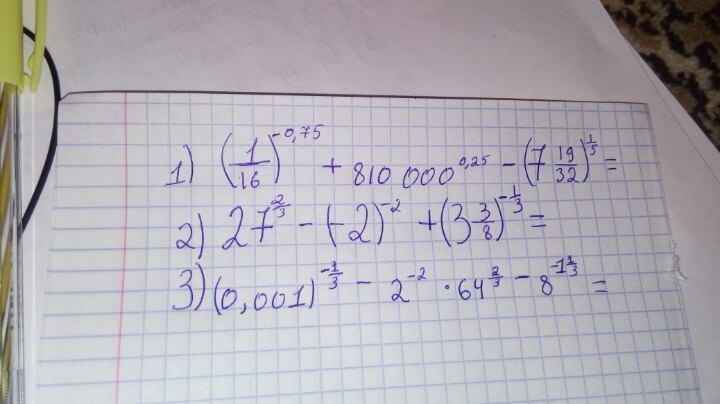 1) (1/16)^-0,75 + 810 000^0,25 - (7 19/32)^1/5 =
2) 27^2/3 - (-2)^-2 + (3 3/8)^-1/3 =
3) (0,001)^-1/3 - 2^-2 · 64^2/3 - 8^-1 1/3 =